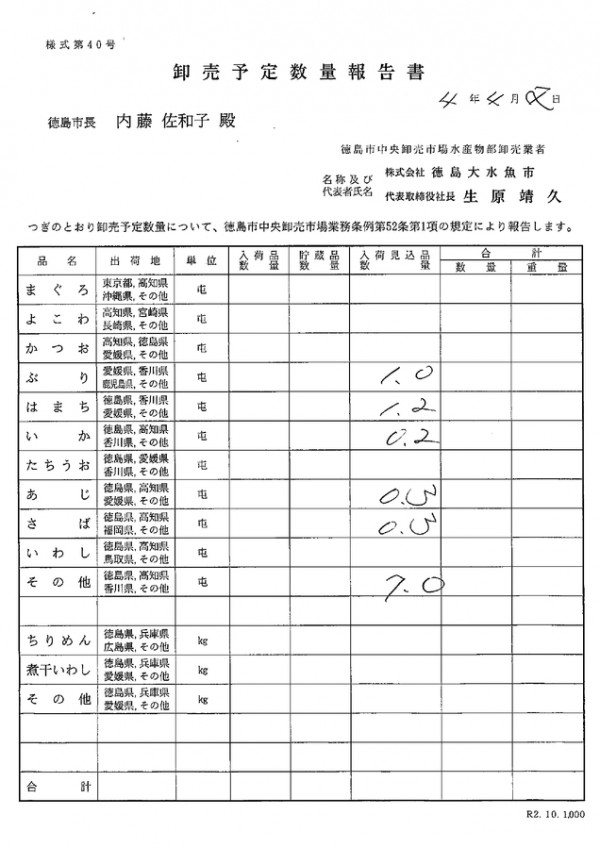 様式第40号
卸売予定数量報告書
4年4月 日
徳島市長 内藤 佐和子 殿
徳島市中央卸売市場水産物部卸売業者
名称及び 株式会社 徳島大水魚市
代表者氏名 代表取締役社長 生原靖久
つぎのとおり卸売予定数量について、徳島市中央卸売市場業務条例第52条第1項の規定により報告します。
品名 出荷地 単位 入荷品数量 貯蔵品数量 入荷見込品数量 合計
数量 重量
まぐろ 東京都,高知県 沖縄県,その他 屯
よこわ 高知県,宮崎県 長崎県,その他 屯
かつお 高知県,徳島県 愛媛県,その他 屯
ぶり 愛媛県,香川県 鹿児島県,その他 屯 1.0
はまち 徳島県,香川県 愛媛県,その他 屯 1.2
いか 徳島県,高知県 香川県,その他 屯 0.2
たちうお 徳島県,愛媛県 香川県,その他 屯
あじ 徳島県,高知県 愛媛県,その他 屯 0.3
さば 徳島県,高知県 福岡県,その他 屯 0.3
いわし 徳島県,高知県 鳥取県,その他 屯
その他 徳島県,高知県 香川県,その他 屯 7.0
ちりめん 徳島県,兵庫県 広島県,その他 kg
煮干いわし 徳島県,兵庫県 愛媛県,その他 kg
その他 徳島県,兵庫県 愛媛県,その他 kg
合計
R2.10.1,000